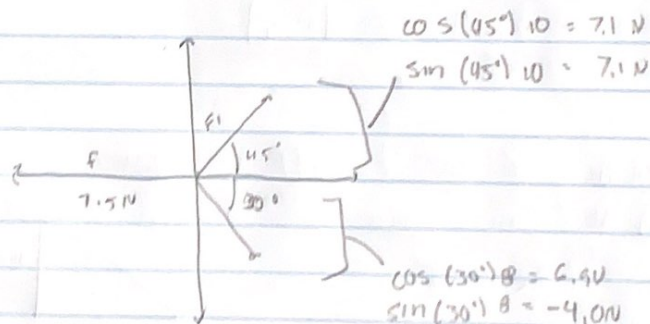 cos (45°) 10 = 7.1 N
sin (45°) 10 = 7.1 N
F1
45°
f
7.5N
30°
cos (30°) 8 = 6.9N
sin (30°) 8 = -4.0N